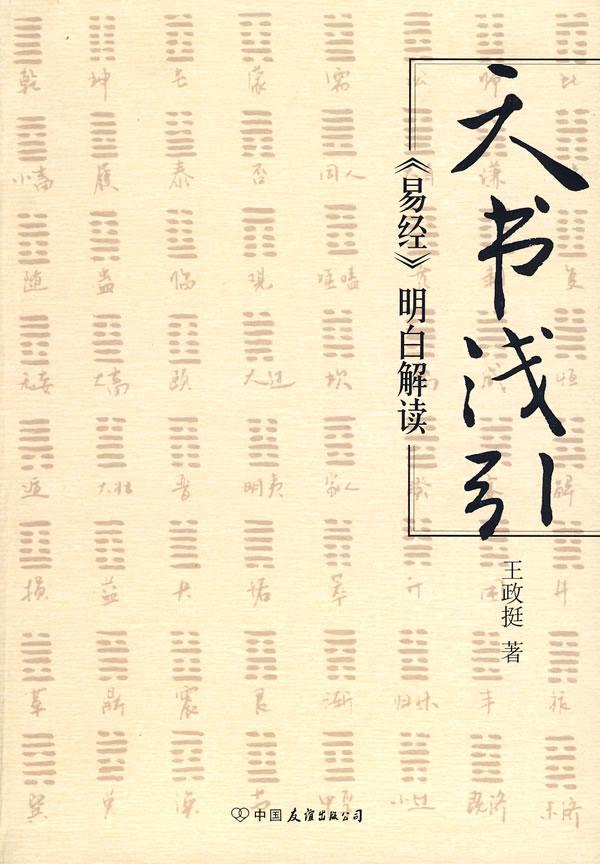 天书浅引
《易经》明白解读
王政挺 著
乾 坤 屯 蒙 需 讼 师 比
小畜 履 泰 否 同人 谦
随 蛊 临 观 噬嗑 复
无妄 大畜 颐 大过 坎 咸 恒
遁 大壮 晋 明夷 家人 睽 解
损 益 夬 姤 萃 升 困 井
革 鼎 震 艮 渐 归妹 丰 旅
巽 兑 涣 节 中孚 小过 既济 未济
中国友谊出版公司